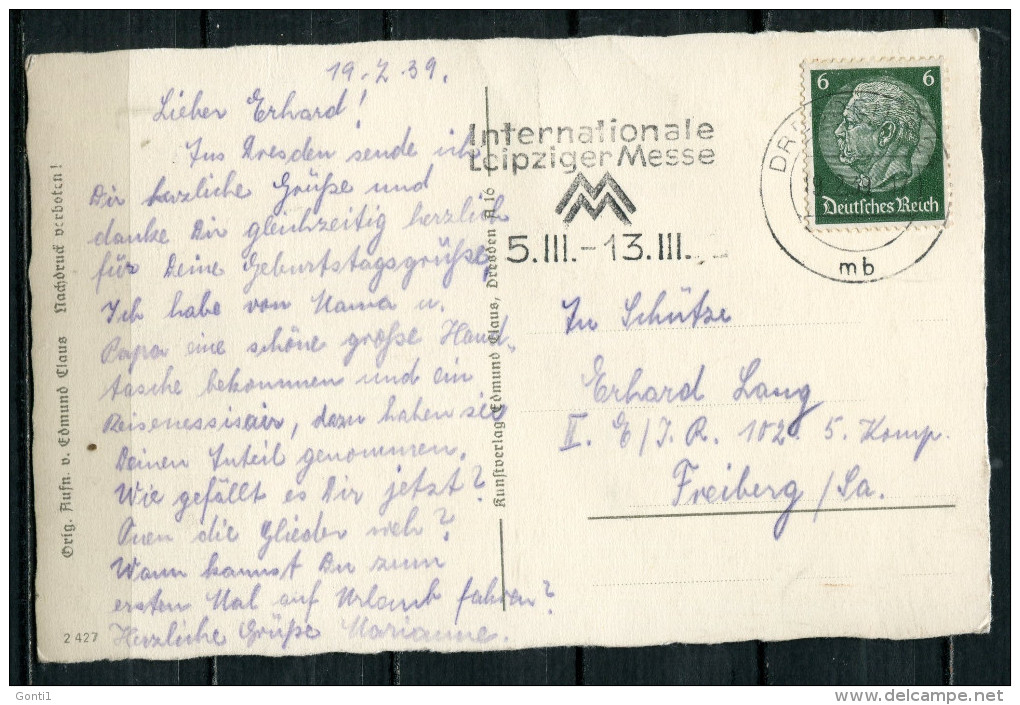 19.2.39.
Lieber Erhard!
Aus Dresden sende ich
Dir herzliche Grüße und
danke Dir gleichzeitig herzlich
für Deine Geburtstagsgrüße.
Ich habe von Mama u.
Papa eine schöne große Hand-
tasche bekommen und ein
Reisenessisair, dazu haben sie
Deinen Anteil genommen.
Wie gefällt es Dir jetzt?
Tuen die Glieder weh?
Wann kannst Du zum
ersten Mal auf Urlaub fahren?
Herzliche Grüße Marianne.
Orig. Aufn. v. Edmund Claus Nachdruck verboten!
2 427
Kunstverlag Edmund Claus, Dresden A 16
Internationale
Leipziger Messe
MM
5.III.-13.III.
6 6
Deutsches Reich
mb
An Schütze
Erhard Lang
II. E/J.R. 102. 5. Komp.
Freiberg/Sa.
Gonti1
delcampe.net